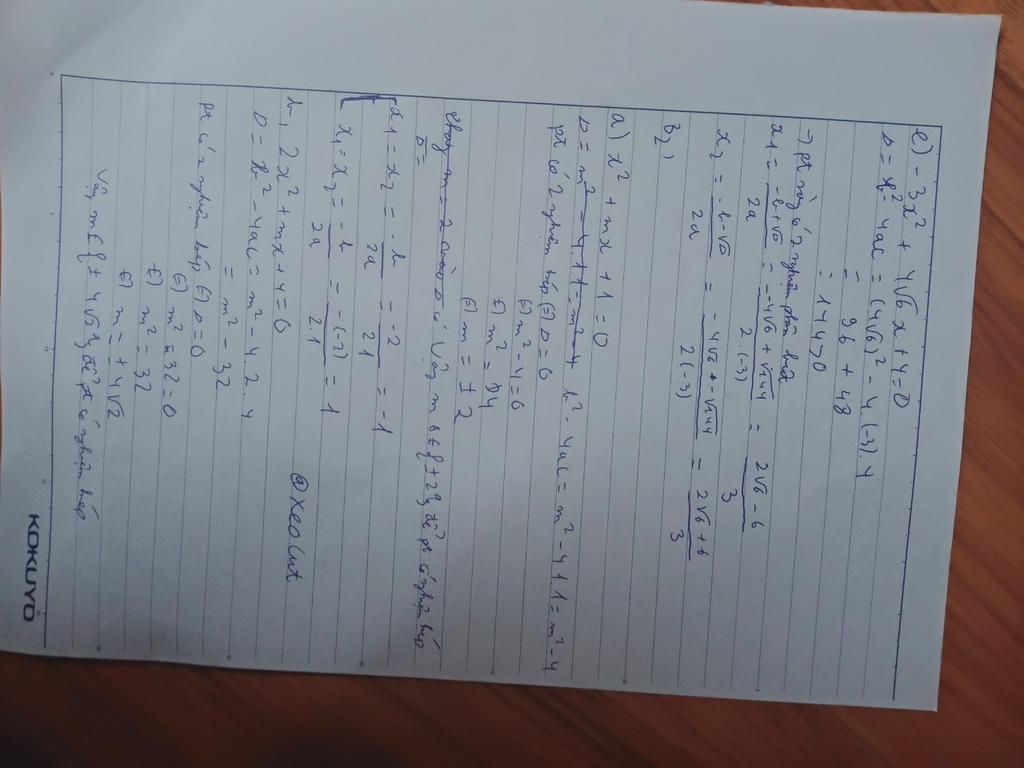 e) -3x² + 4√6 x + 4 = 0
D = b² - 4ac = (4√6)² - 4.(-3).4
= 96 + 48
= 144 > 0
→ pt này có 2 nghiệm phân biệt
x1 = -b+√D / 2a = -4√6 + √144 / 2.(-3) = 2√6 - 6 / 3
x2 = -b-√D / 2a = -4√6 + -√144 / 2(-3) = 2√6 + 6 / 3
B2)
a) x² + mx + 1 = 0
D = m² - 4.1.1 = m² - 4 b² - 4ac = m² - 4.1.1 = m² - 4
pt có 2 nghiệm kép (=) D = 0
(=) m² - 4 = 0
(=) m² = 4
(=) m = ± 2
Thay m = 2 có Vậy m ∈ {± 2} để pt có nghiệm kép
D =
x1 = x2 = -b / 2a = -2 / 2.1 = -1
x1 = x2 = -b / 2a = -(-2) / 2.1 = 1
b, 2x² + mx + 4 = 0
@xeolut
D = b² - 4ac = m² - 4.2.4
= m² - 32
pt có 2 nghiệm kép (=) D = 0
(=) m² - 32 = 0
(=) m² = 32
(=) m = ± 4√2
Vậy m ∈ {± 4√2} để pt có nghiệm kép
KOKUYO